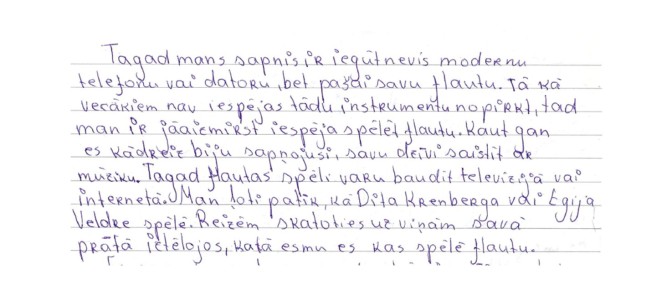 Tagad mans sapnis, ir iegūt nevis modernu
telefonu vai datoru, bet pašai savu flautu. Tā kā
vecākiem nav iespējas tādu instrumentu nopirkt, tad
man ir jāaiemirst iespēja spēlēt flautu. Kaut gan
es kādreiz biju sapņojusi, savu dzīvi saistīt ar
mūziku. Tagad flautas spēli varu baudīt televīzijā vai
internetā. Man ļoti patīk, kā Dita Krenberga vai Egija
Veldre spēlē. Reizēm skatoties uz viņām savā
prātā iztēlojos, ka tā esmu es kas spēlē flautu.